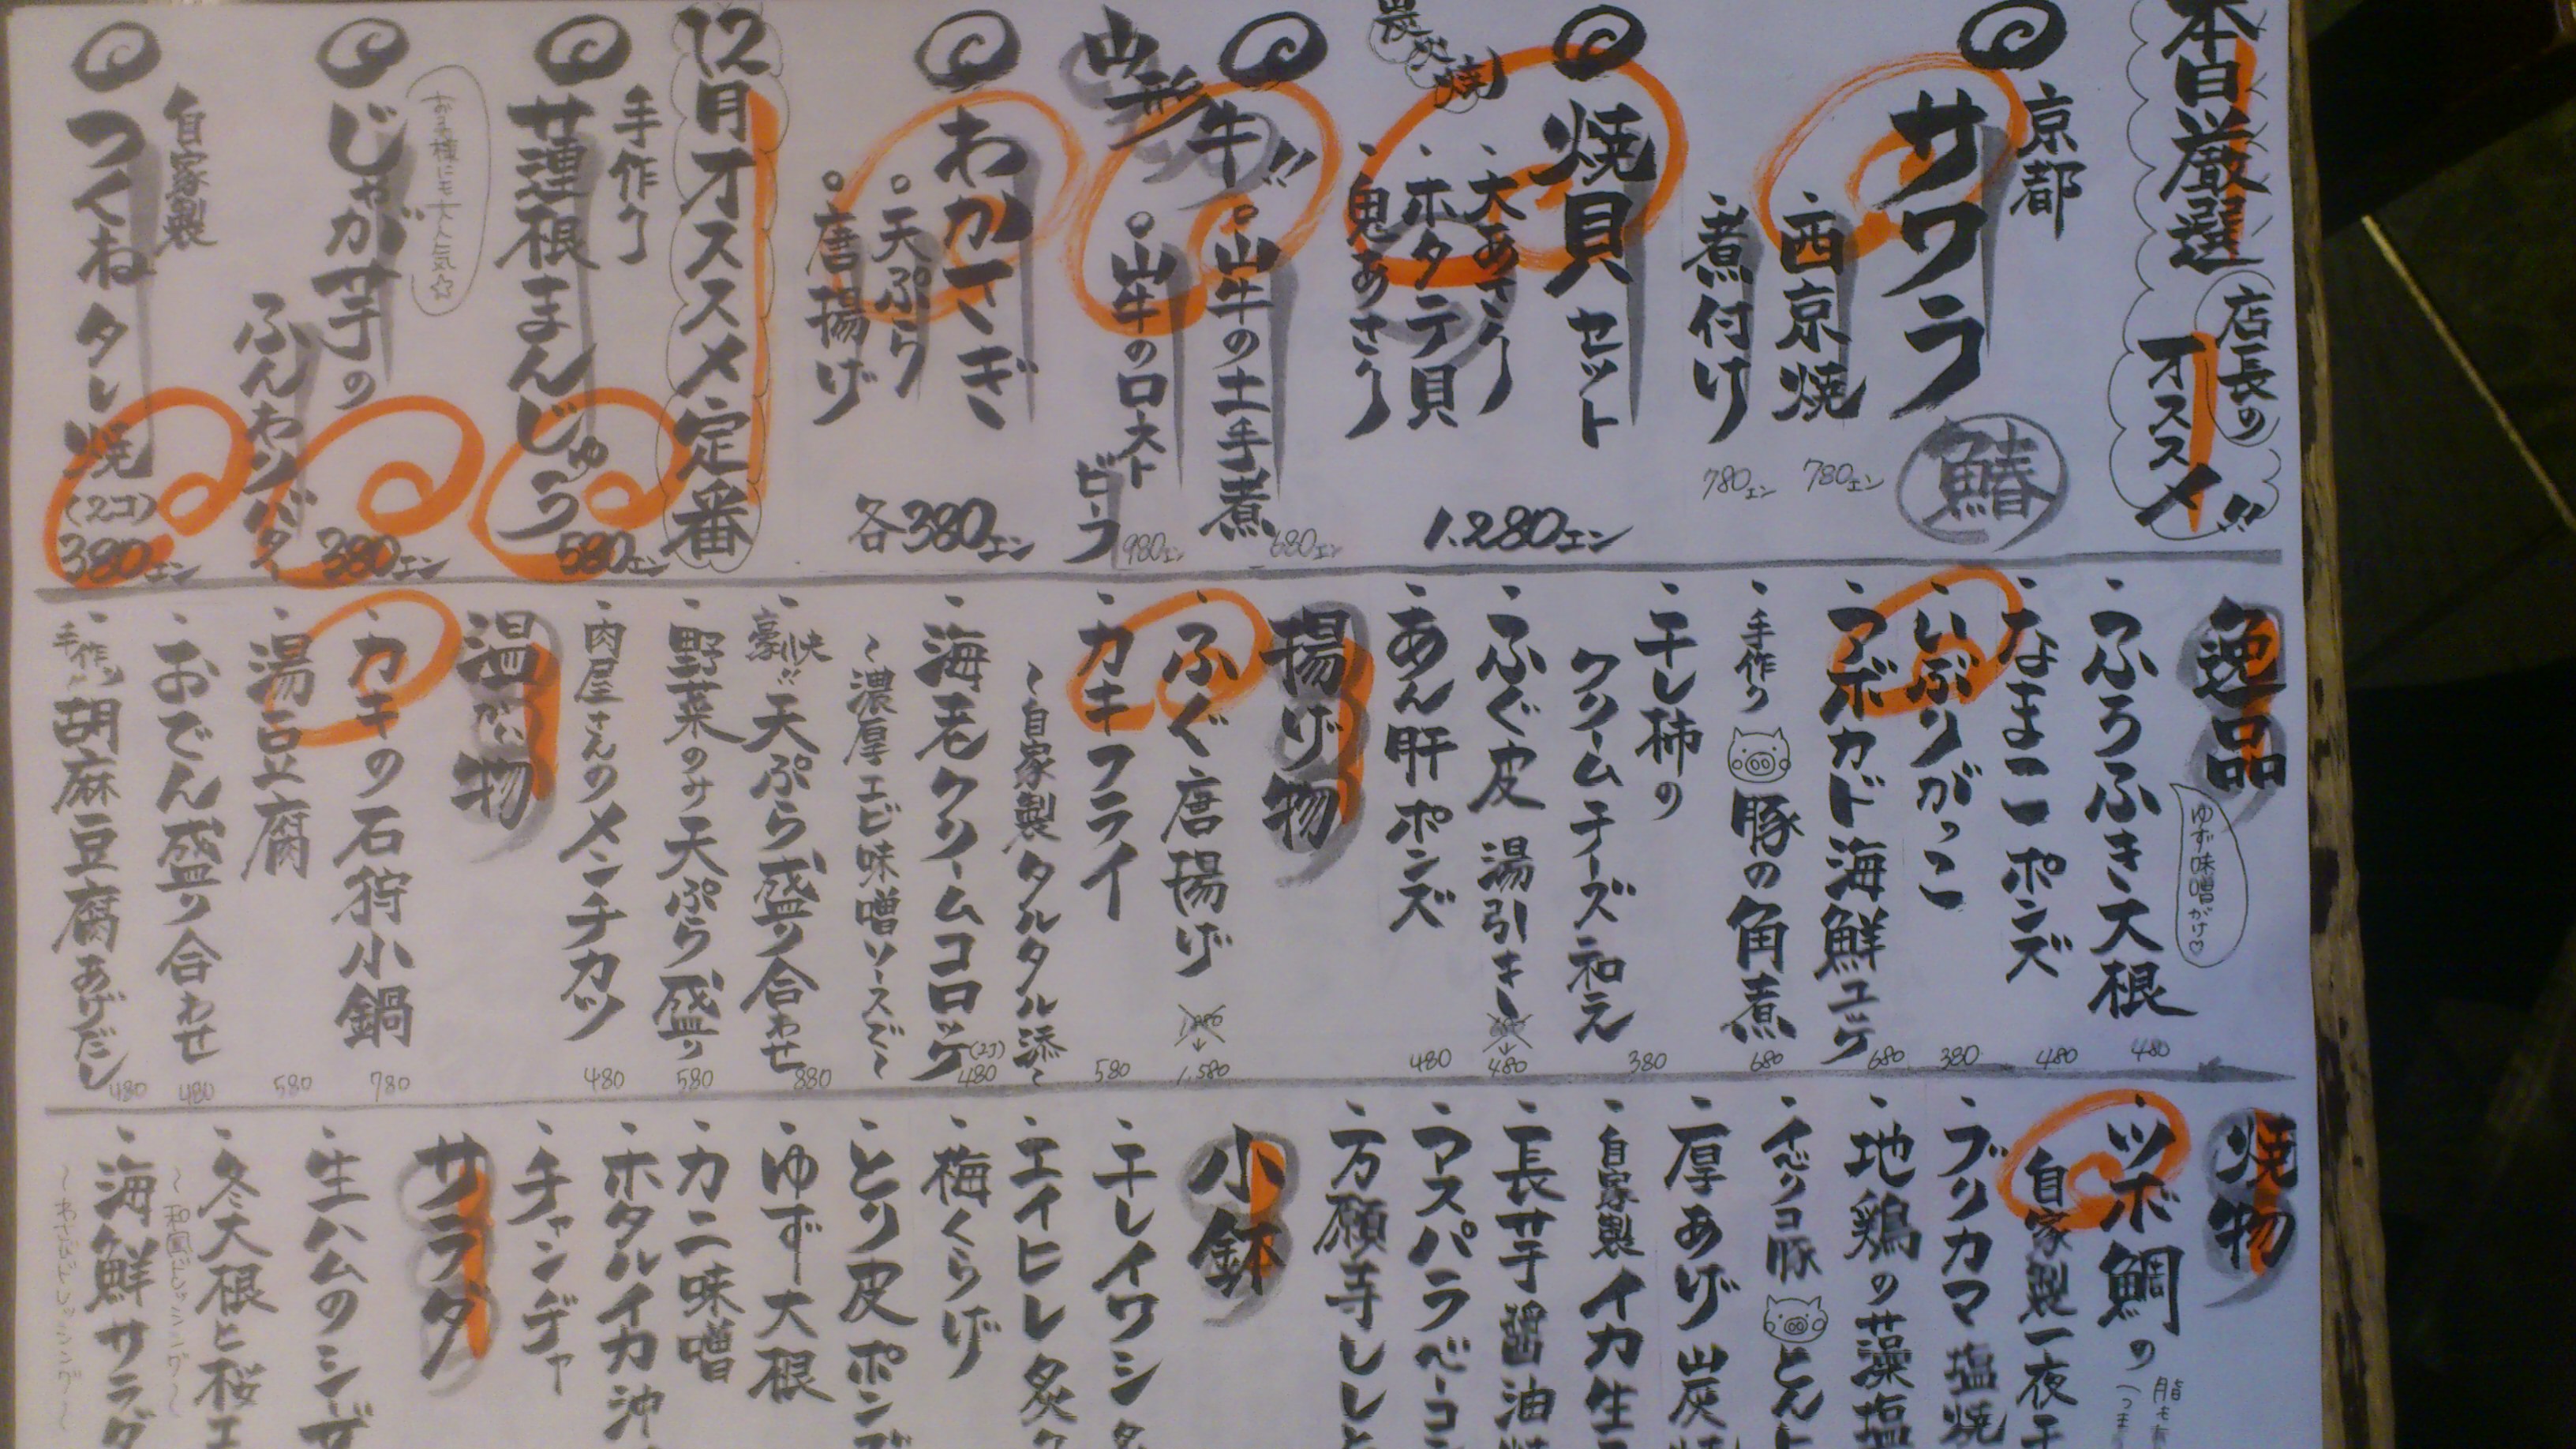 本日厳選
店長の
オススメ!!
京都
サワラ
鰆
西京焼
780エン
煮付け
780エン
焼貝セット
大あさり
ホタテ貝
鬼あさり
1.280エン
山形牛!!
山牛の土手煮
680エン
山牛のロースト
ビーフ
980エン
わかさぎ
天ぷら
唐揚げ
各380エン
12月オススメ定番
手作り
蓮根まんじゅう
580エン
お子様にも大人気☆
じゃが芋の
ふんわりバター
380エン
自家製
つくねタレ焼(2コ)
380エン
逸品
ゆず味噌がけ♡
・ふろふき大根
480
・なまこポンズ
480
・いぶりがっこ
380
・アボカド海鮮ユッケ
680
・手作り豚の角煮
680
・干し柿の
クリームチーズ和え
380
・ふぐ皮湯引き
480
・あん肝ポンズ
480
揚げ物
・ふぐ唐揚げ
1.580
・カキフライ
580
~自家製タルタル添~
・海老クリームコロッケ(2コ)
480
~濃厚エビ味噌ソースで~
・豪快!!天ぷら盛り合わせ
880
・野菜のみ天ぷら盛り
580
・肉屋さんのメンチカツ
480
温かい物
・カキの石狩小鍋
780
・湯豆腐
580
・おでん盛り合わせ
480
・手作り胡麻豆腐あげだし
480
焼物
・ツボ鯛の
自家製一夜干
・ブリカマ塩焼
・地鶏の藻塩
・イベリコ豚とん
・厚あげ山炭
・自家製イカ生
・長芋醤油
・アスパラベーコン
・万願寺しし
小鉢
・干しイワシ
・エイヒレ炙り
・梅くらげ
・とり皮ポンズ
・ゆず大根
・カニ味噌
・ホタルイカ沖
・チャンヂャ
サラダ
・生ハムのシーザ
・冬大根と桜エ
~和風ドレッシング~
・海鮮サラダ
~わさびドレッシング~